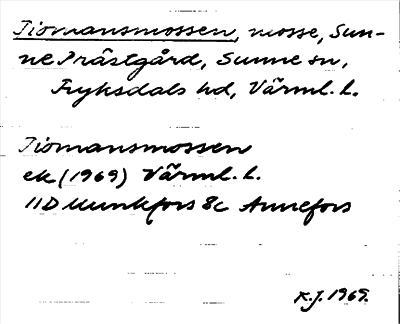 Tiomansmossen, mosse, Sun-
ne Prästgård, Sunne sn,
Fryksdals hd, Värml. l.
Tiomansmossen
ek (1969) Värml. l.
11D Munkfors 8c Annefors
R.J. 1969.